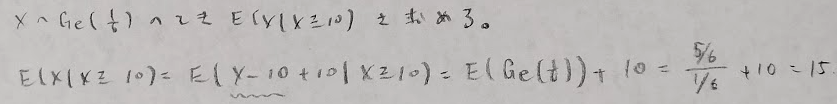 X ~ Ge(1/6) のとき E(X|X≧10) を求める。
E(X|X≧10) = E(X-10+10|X≧10) = E(Ge(1/6)) + 10 = (5/6)/(1/6) + 10 = 15.